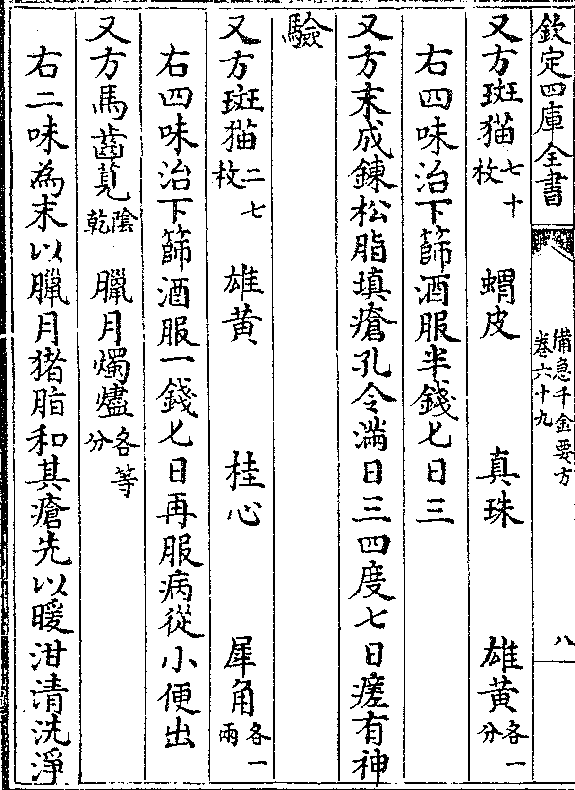 欽定四庫全書 備急千金要方 卷六十九 八
又方斑猫七十枚 蝟皮 真珠 雄黃各一分
右四味治下篩酒服半錢匕日三
又方末成鍊松脂填瘡孔令滿日三四度七日瘥有神
驗
又方斑猫二七枚 雄黃 桂心 犀角各一兩
右四味治下篩酒服一錢匕日再服病從小便出
又方馬齒莧陰乾 臘月燭燼各等分
右二味為末以臘月猪脂和其瘡先以暖泔清洗淨